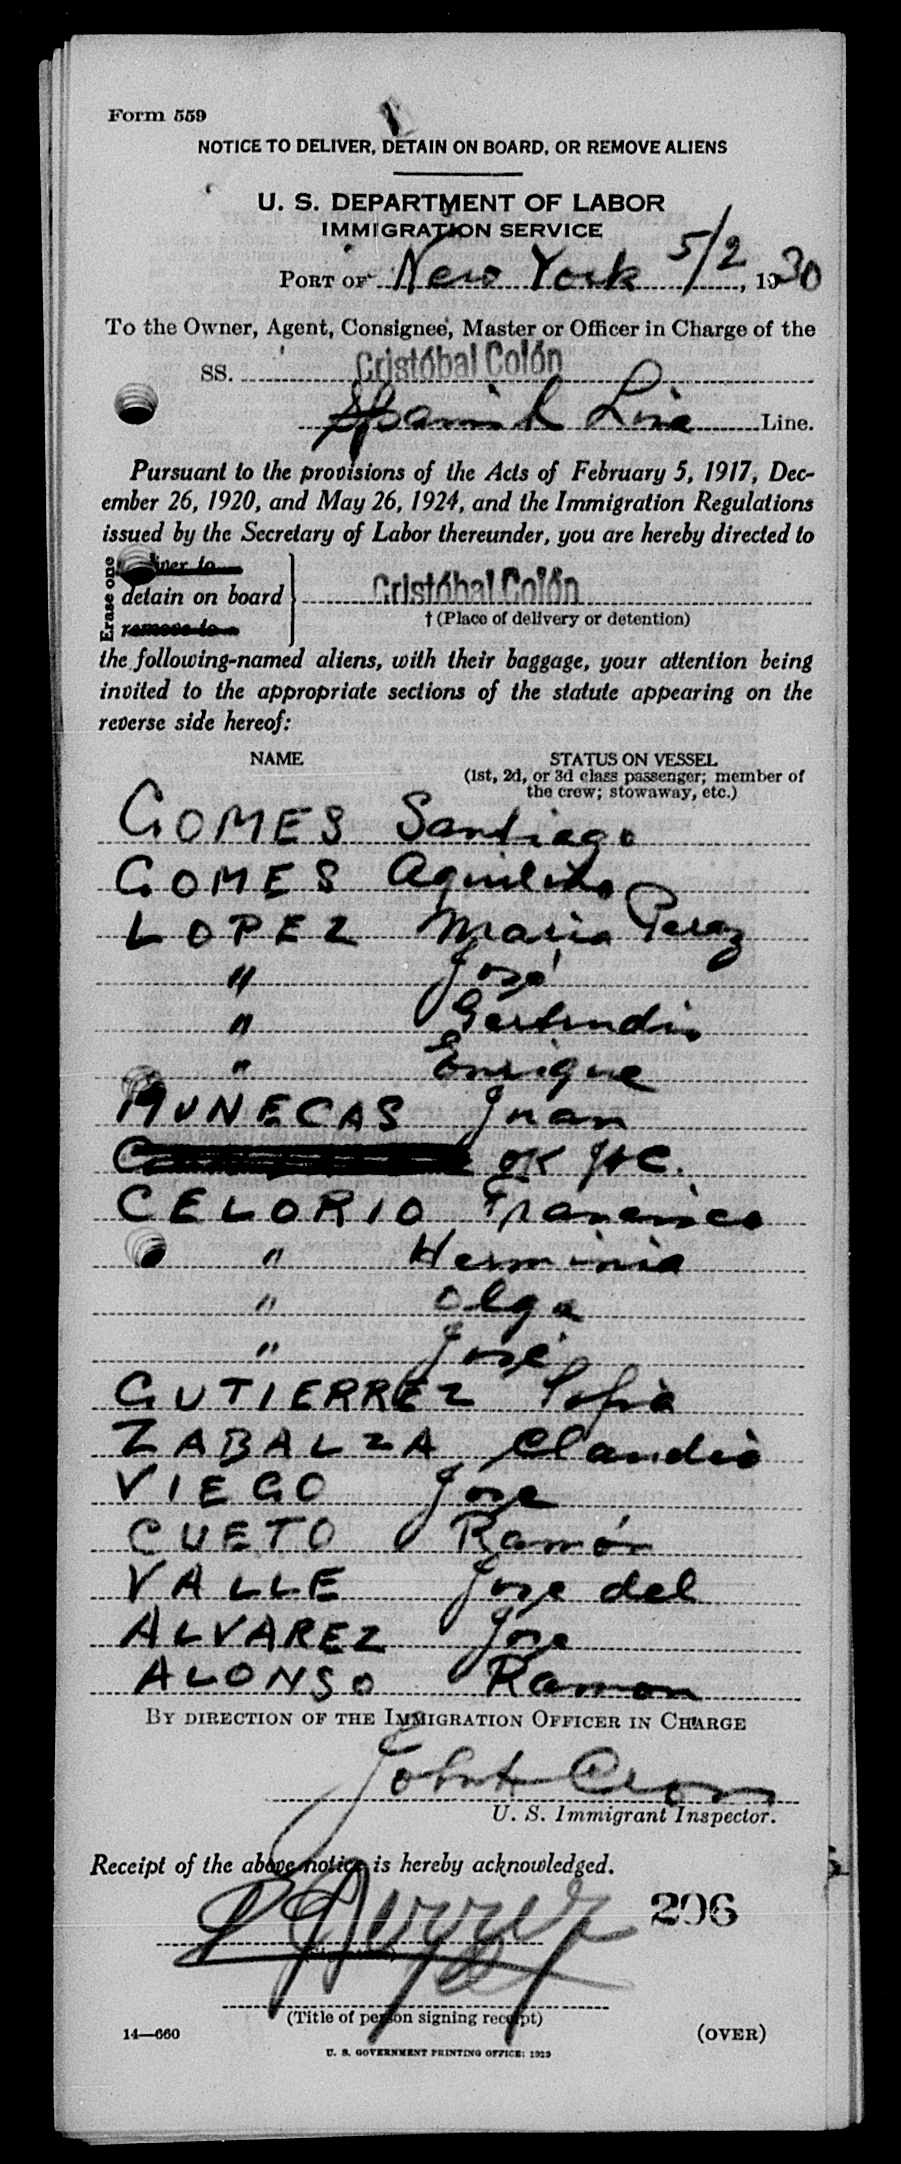 Form 559
NOTICE TO DELIVER, DETAIN ON BOARD, OR REMOVE ALIENS
U. S. DEPARTMENT OF LABOR
IMMIGRATION SERVICE
PORT OF New York 5/2, 1930
To the Owner, Agent, Consignee, Master or Officer in Charge of the
SS. Cristóbal Colón
Spanish Line Line.
Pursuant to the provisions of the Acts of February 5, 1917, Dec-
ember 26, 1920, and May 26, 1924, and the Immigration Regulations
issued by the Secretary of Labor thereunder, you are hereby directed to
Erase one
deliver to
detain on board Cristóbal Colón
remove to
† (Place of delivery or detention)
the following-named aliens, with their baggage, your attention being
invited to the appropriate sections of the statute appearing on the
reverse side hereof:
NAME STATUS ON VESSEL
(1st, 2d, or 3d class passenger; member of
the crew; stowaway, etc.)
GOMES Santiago
GOMES Aquilino
LOPEZ Maria Perez
" José
" Gertrudis
" Enrique
MUNECAS Juan
OK JHC.
CELORIO Francisco
" Herminia
" Olga
" José
GUTIERREZ Sofia
ZABALZA Claudio
VIEGO Jose
CUETO Ramón
VALLE Jose del
ALVAREZ Jose
ALONSO Ramon
BY DIRECTION OF THE IMMIGRATION OFFICER IN CHARGE
John H
U. S. Immigrant Inspector.
Receipt of the above notice is hereby acknowledged.
296
(Title of person signing receipt)
14—660 (OVER)
U. S. GOVERNMENT PRINTING OFFICE: 1929